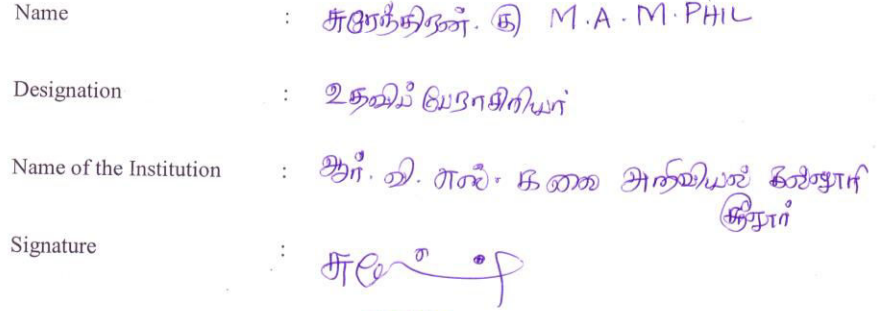 Name : சுரேந்திரன். கி M.A. M.PHIL
Designation : உதவிப் பேராசிரியர்
Name of the Institution : ஆர். வி. எஸ். கலை அறிவியல் கல்லூரி
சூலூர்
Signature :